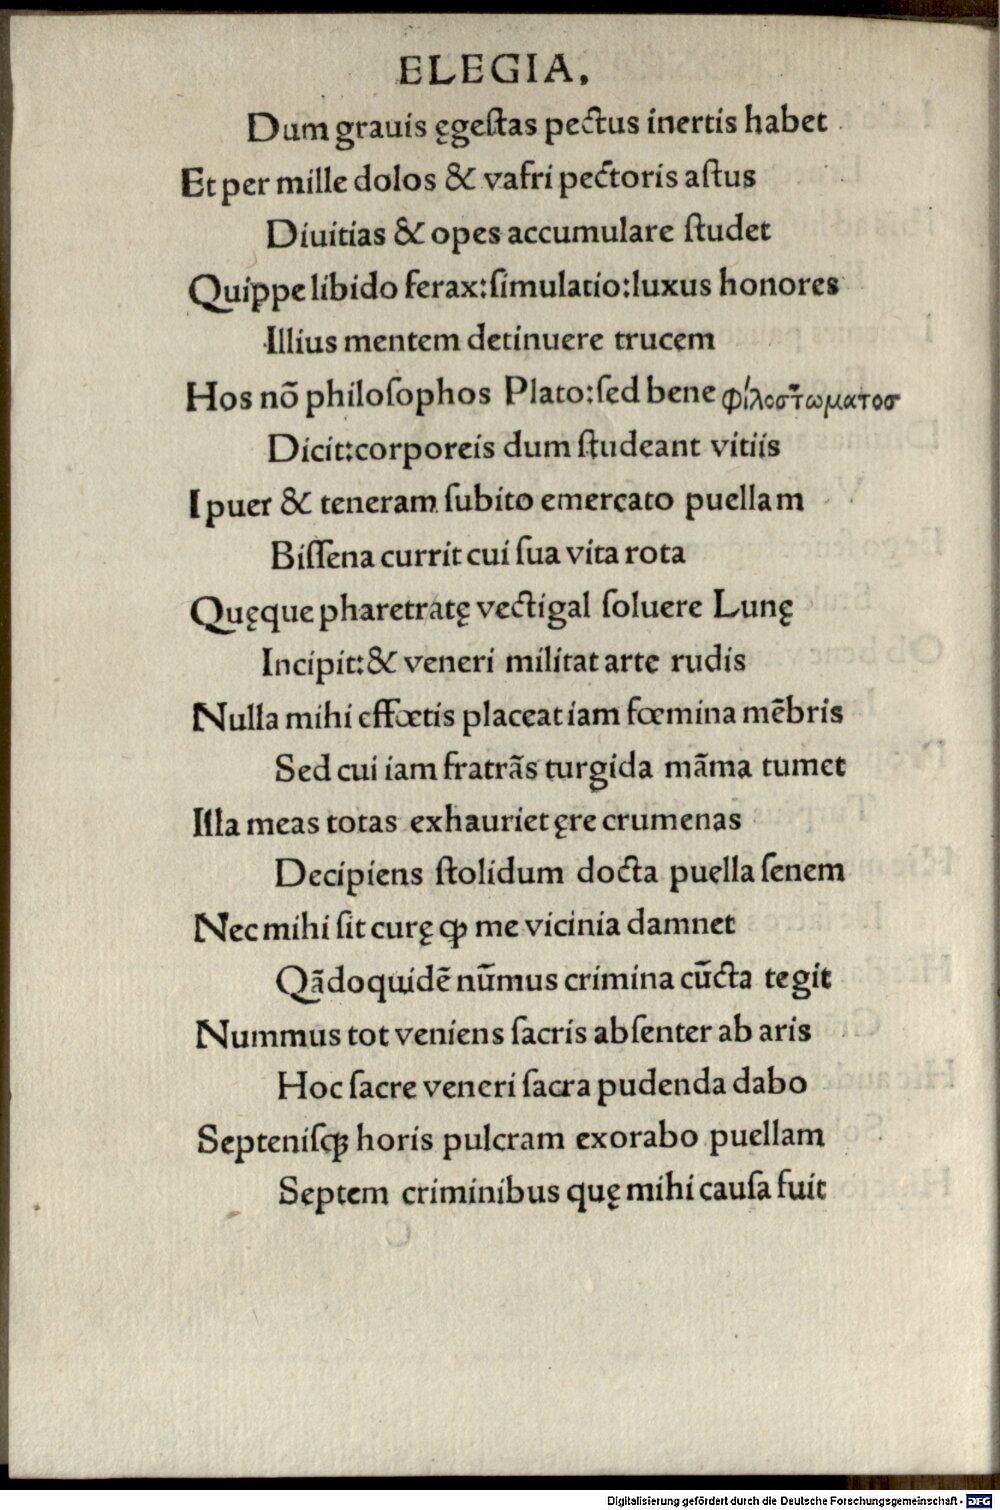 ELEGIA.
Dum grauis ęgeſtas pectus inertis habet
Et per mille dolos & vafri pectoris aſtus
Diuitias & opes accumulare ſtudet
Quippe libido ferax:ſimulatio:luxus honores
Illius mentem detinuere trucem
Hos nõ philoſophos Plato:ſed bene φιλοσώματοσ
Dicit:corporeis dum ſtudeant vitiis
I puer & teneram ſubito emercato puellam
Biſſena currit cui ſua vita rota
Quęque pharetratę vectigal ſoluere Lunę
Incipit:& veneri militat arte rudis
Nulla mihi effœtis placeat iam fœmina mẽbris
Sed cui iam fratrãs turgida mãma tumet
Illa meas totas exhauriet ęre crumenas
Decipiens ſtolidum docta puella ſenem
Nec mihi ſit curę ꝙ me vicinia damnet
Qãdoquidẽ nũmus crimina cũcta tegit
Nummus tot veniens ſacris abſenter ab aris
Hoc ſacre veneri ſacra pudenda dabo
Septeniſqꝫ horis pulcram exorabo puellam
Septem criminibus quę mihi cauſa fuit
Digitalisierung gefördert durch die Deutsche Forschungsgemeinschaft - DFG